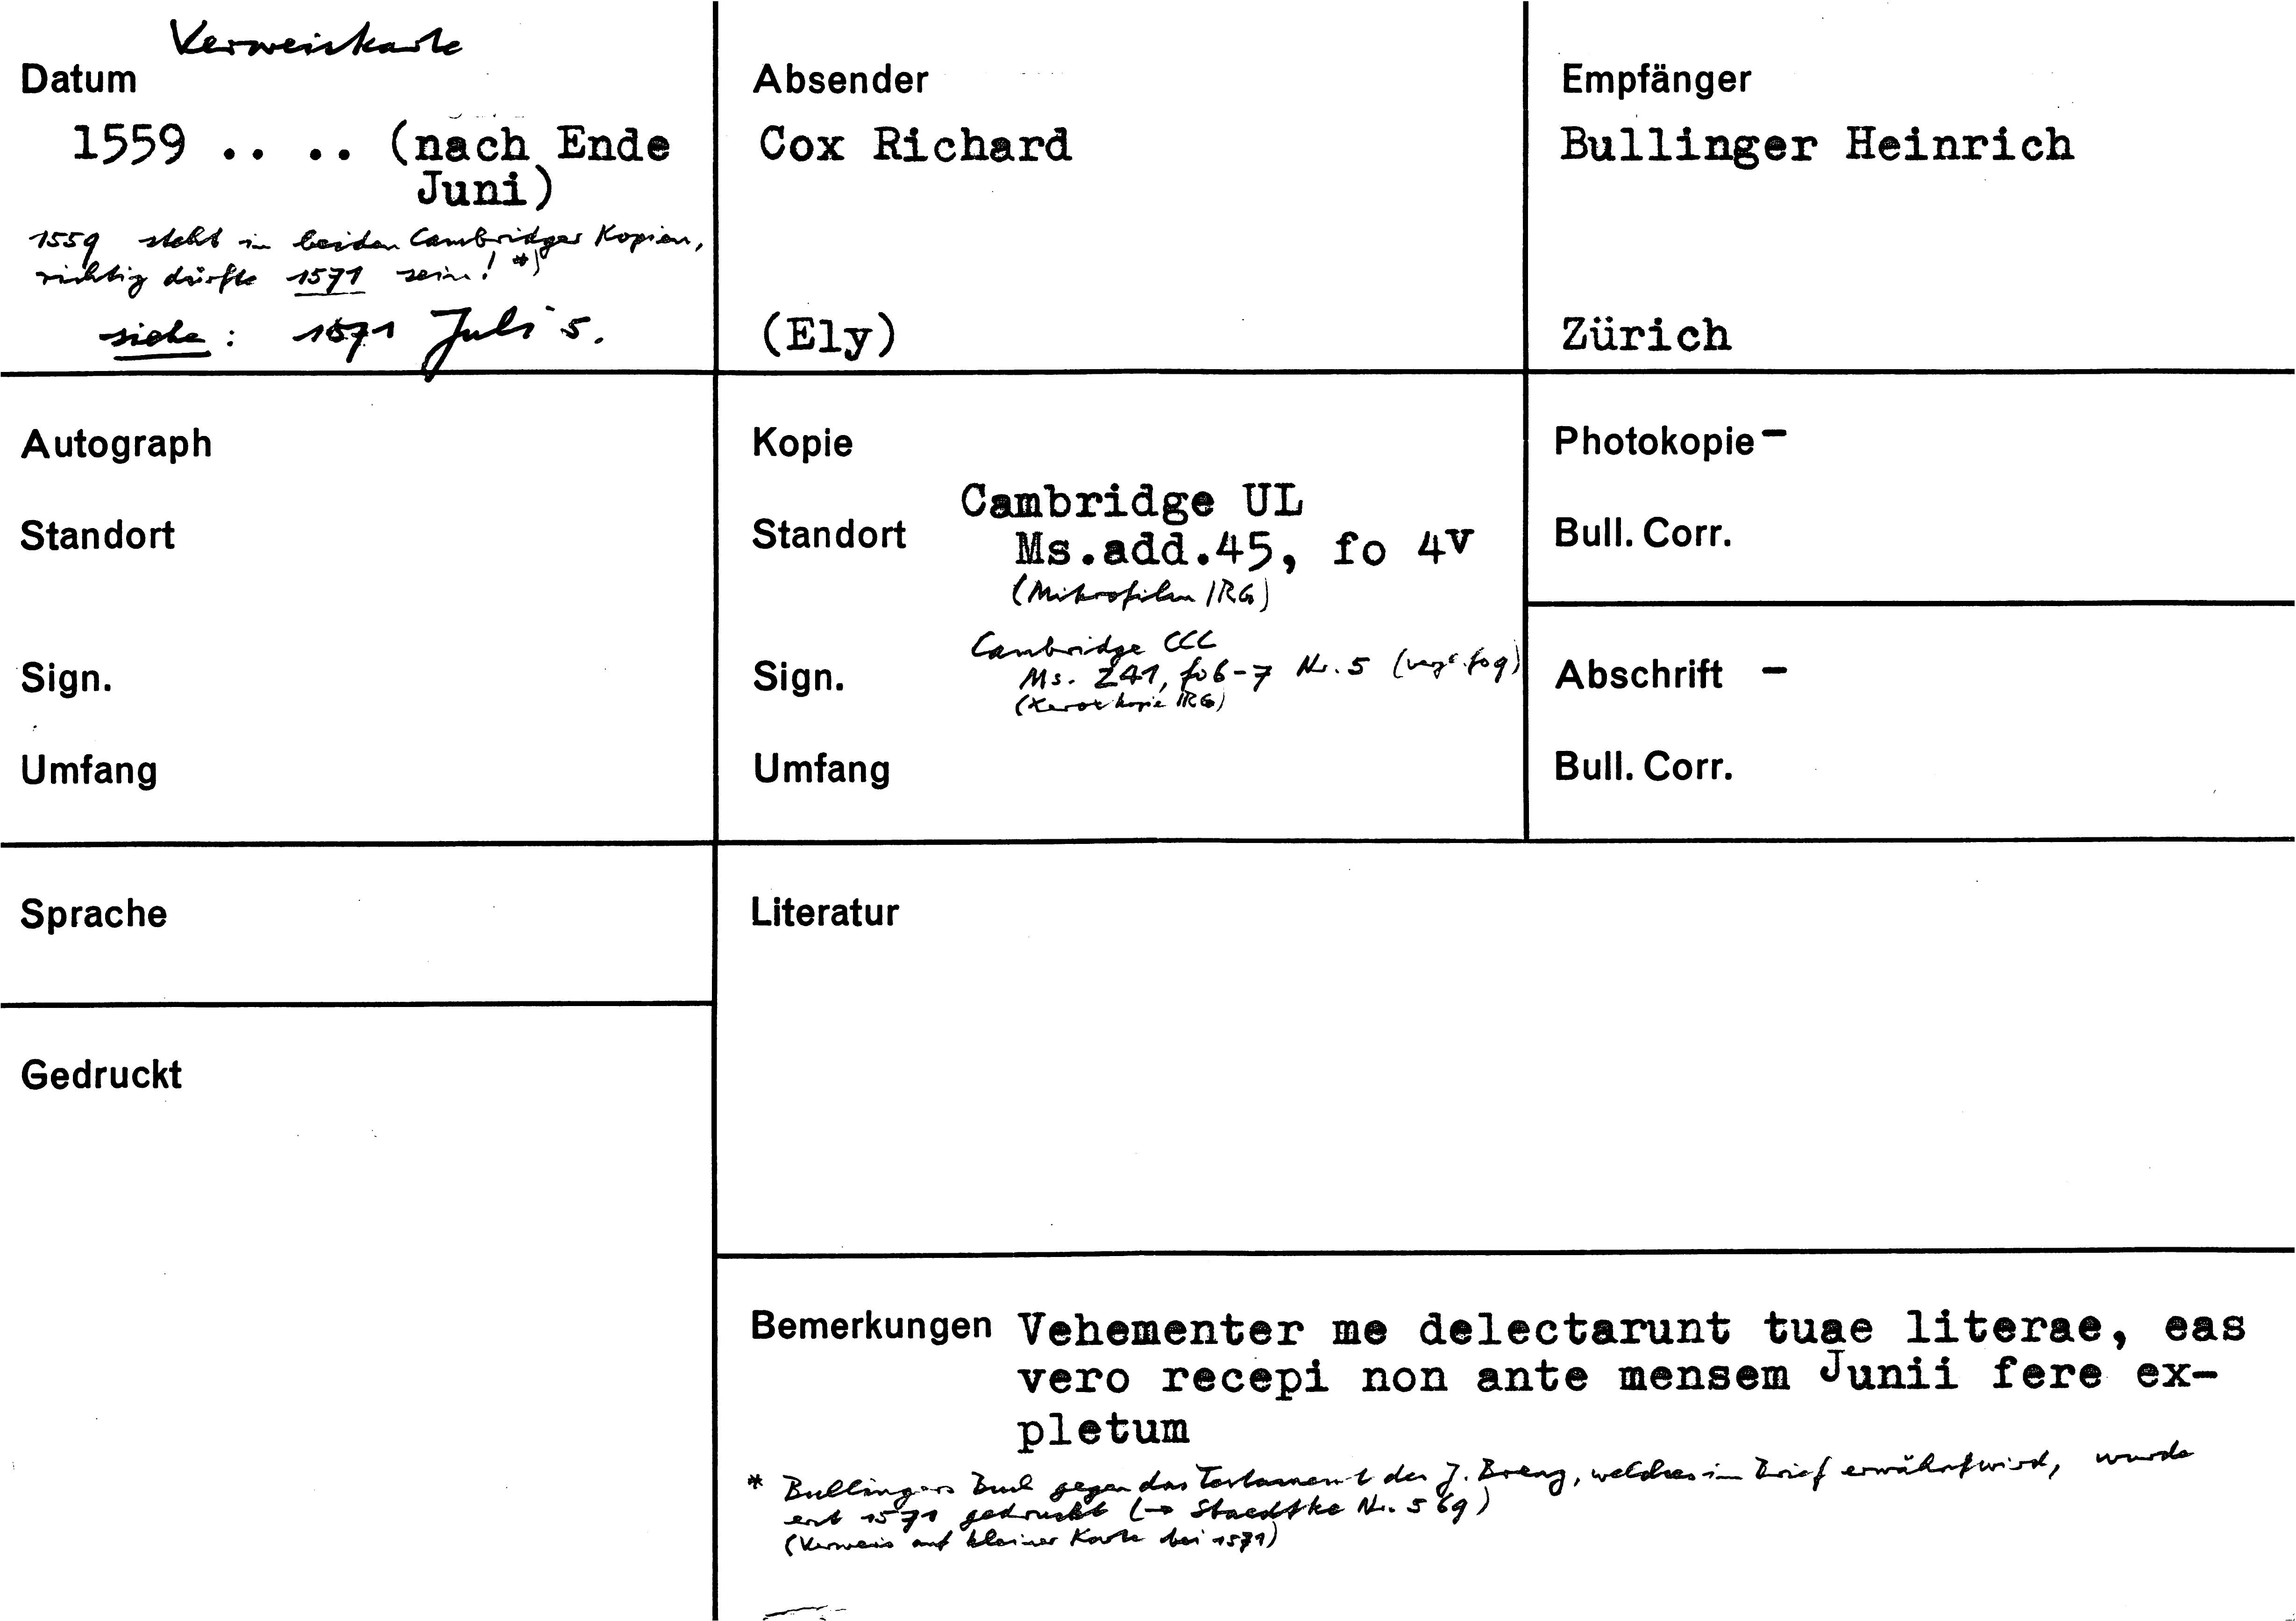 Verweiskarte
Datum
1559 .. .. (nach Ende
Juni)
1559 steht in beiden Cambridger Kopien,
richtig dürfte 1571 sein! *)
siehe: 1571 Juli 5.
Absender
Cox Richard
(Ely)
Empfänger
Bullinger Heinrich
Zürich
Autograph
Standort
Sign.
Umfang
Kopie
Cambridge UL
Standort
Ms.add.45, fo 4v
(Mikrofilm IRG)
Cambridge CCC
Sign.
Ms. 241, fo 6-7 Nr. 5 (vgl. fo 9)
(Xeroxkopie IRG)
Umfang
Photokopie -
Bull. Corr.
Abschrift -
Bull. Corr.
Sprache
Gedruckt
Literatur
Bemerkungen Vehementer me delectarunt tuae literae, eas
vero recepi non ante mensem Junii fere ex-
pletum
* Bullingers Buch gegen das Testament des J. Brenz, welches im Brief erwähnt wird, wurde
erst 1571 gedruckt (→ Staedtke Nr. 569)
(Verweis auf kleiner Karte bei 1571)